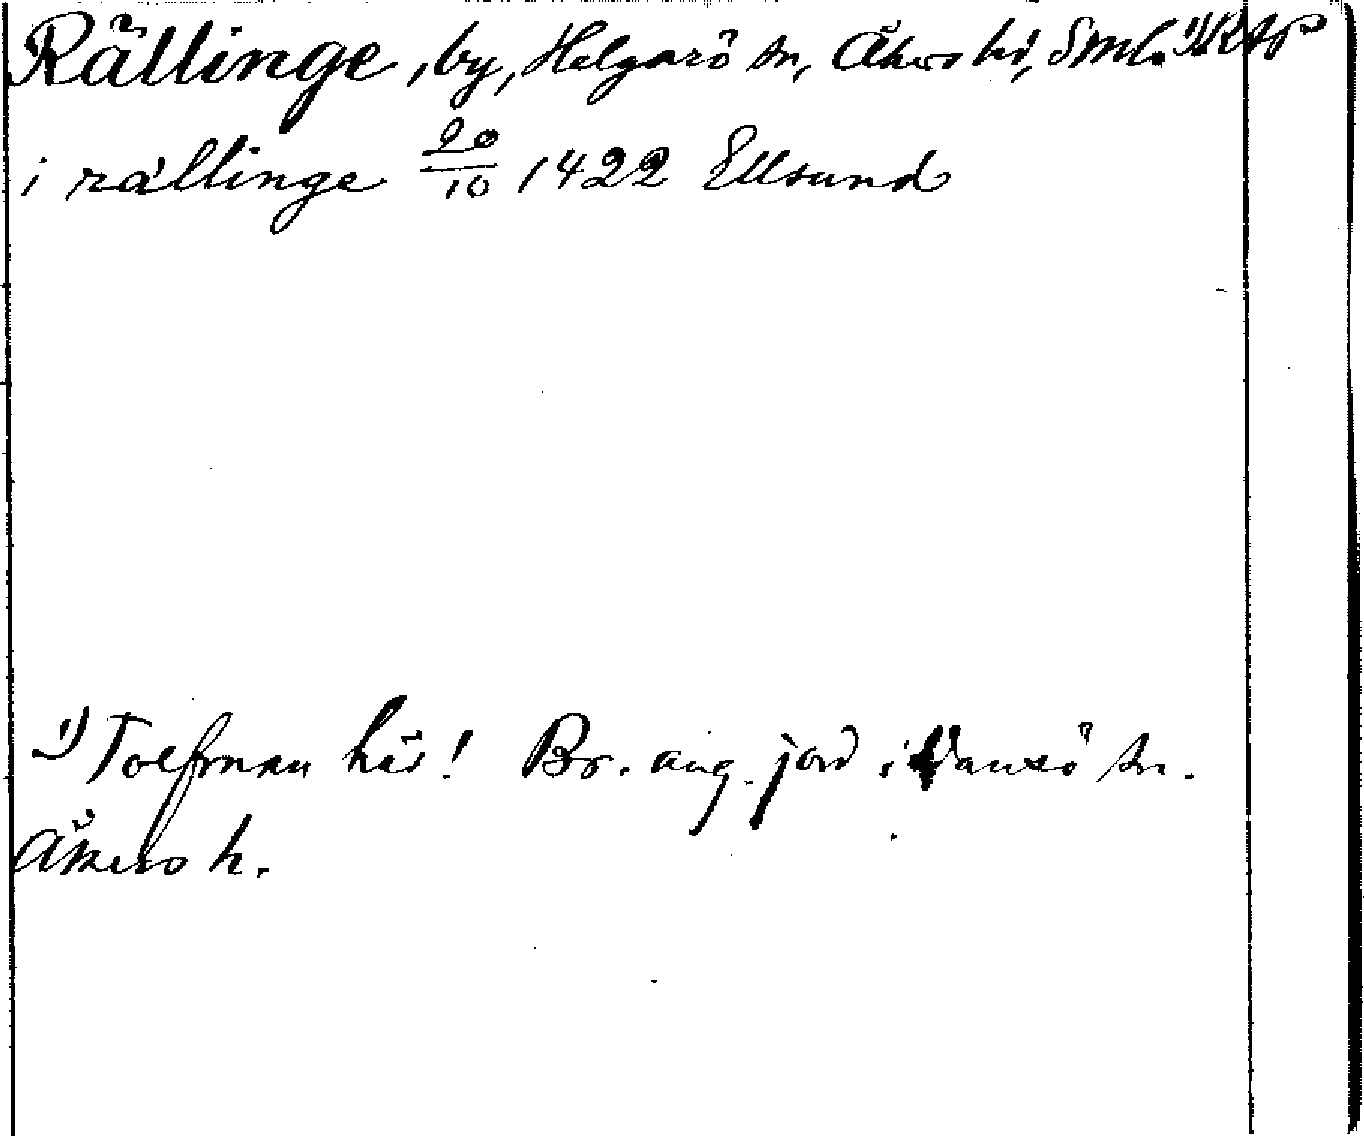 Rällinge, by, Helgarö sn, Åkers hd, Sml. 1) RAP
i rællinge 20/10 1422 Ellsund
1) Tolfman här! Br. ang. jord i Vansö sn.
Åkers h.